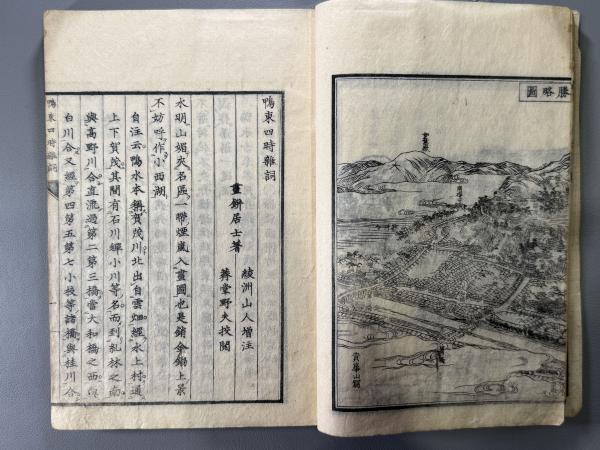 勝略圖
鴨東四時雜詞
畫餅居士著
綾洲山人增注
野夫校閲
水明山媚夾名區一帶煙嵐入畫圖也是銷金鍋上景
不妨呼作小西湖
自注云鴨水本稱賀茂川北出自雲畑經水上村過
上下賀茂其間有石川蟬小川等名而到糺林之南
與高野川合直流過第二第三橋當大和橋之西與
白川合又經第四第五第七小技等諸橋與桂川合
鴨東四時雜詞